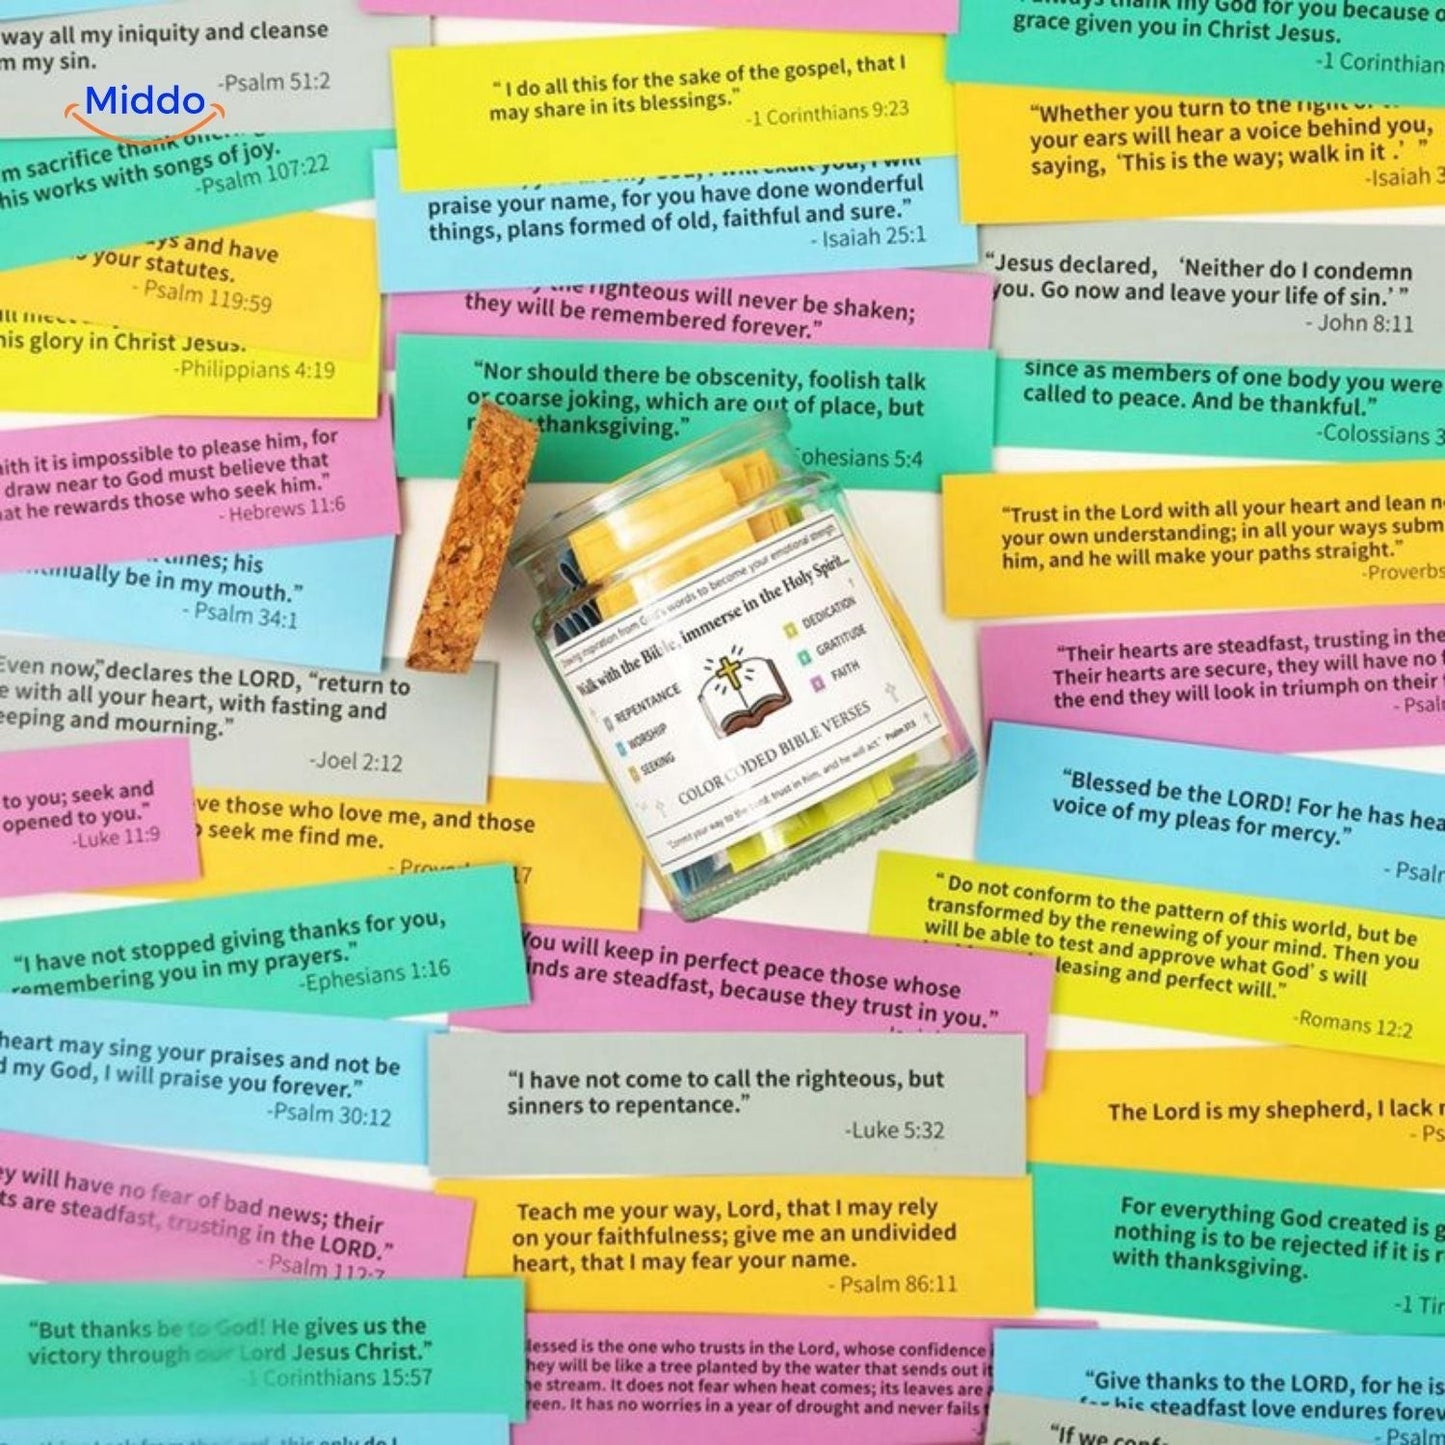 way all my iniquity and cleanse
m my sin.
-Psalm 51:2
Middo
m sacrifice thank
his works with songs of joy.
-Psalm 107:22
ys and have
your statutes.
- Psalm 119:59
his glory in Christ Jesus.
-Philippians 4:19
aith it is impossible to please him, for
draw near to God must believe that
at he rewards those who seek him.”
- Hebrews 11:6
his
nually be in my mouth.”
- Psalm 34:1
Even now,”declares the LORD, “return to
e with all your heart, with fasting and
eeping and mourning.”
-Joel 2:12
to you; seek and
opened to you.”
-Luke 11:9
ve those who love me, and those
seek me find me.
17
“I have not stopped giving thanks for you,
remembering you in my prayers.”
-Ephesians 1:16
heart may sing your praises and not be
d my God, I will praise you forever.”
-Psalm 30:12
ey will have no fear of bad news; their
ts are steadfast, trusting in the LORD.”
- Psalm 112:7
“But thanks be to God! He gives us the
victory through our Lord Jesus Christ.”
-1 Corinthians 15:57
“ I do all this for the sake of the gospel, that I
may share in its blessings.”
-1 Corinthians 9:23
praise your name, for you have done wonderful
things, plans formed of old, faithful and sure.”
- Isaiah 25:1
the righteous will never be shaken;
they will be remembered forever.”
“Nor should there be obscenity, foolish talk
or coarse joking, which are out of place, but
thanksgiving.”
phesians 5:4
Drawing inspiration from God's words to become your emotional strength
Walk with the Bible, immerse in the Holy Spirit...
REPENTANCE
WORSHIP
SEEKING
DEDICATION
GRATITUDE
FAITH
COLOR CODED BIBLE VERSES
"Commit your way to the Lord; trust in him, and he will act." Psalm 37:5
You will keep in perfect peace those whose
inds are steadfast, because they trust in you.”
“I have not come to call the righteous, but
sinners to repentance.”
-Luke 5:32
Teach me your way, Lord, that I may rely
on your faithfulness; give me an undivided
heart, that I may fear your name.
- Psalm 86:11
lessed is the one who trusts in the Lord, whose confidence
hey will be like a tree planted by the water that sends out it
e stream. It does not fear when heat comes; its leaves are
reen. It has no worries in a year of drought and never fails
always thank my God for you because o
grace given you in Christ Jesus.
-1 Corinthian
“Whether you turn to the right or
your ears will hear a voice behind you,
saying, ‘This is the way; walk in it .’ ”
-Isaiah 3
“Jesus declared, ‘Neither do I condemn
you. Go now and leave your life of sin.’ ”
- John 8:11
since as members of one body you were
called to peace. And be thankful.”
-Colossians 3
“Trust in the Lord with all your heart and lean n
your own understanding; in all your ways subm
him, and he will make your paths straight.”
-Proverbs
“Their hearts are steadfast, trusting in the
Their hearts are secure, they will have no
the end they will look in triumph on their
- Psal
“Blessed be the LORD! For he has hea
voice of my pleas for mercy.”
- Psalr
“ Do not conform to the pattern of this world, but be
transformed by the renewing of your mind. Then you
will be able to test and approve what God’ s will
leasing and perfect will.”
-Romans 12:2
The Lord is my shepherd, I lack n
- Ps
For everything God created is g
nothing is to be rejected if it is r
with thanksgiving.
-1 Tir
“Give thanks to the LORD, for he is
his steadfast love endures forev
- Psalm
“If we conf